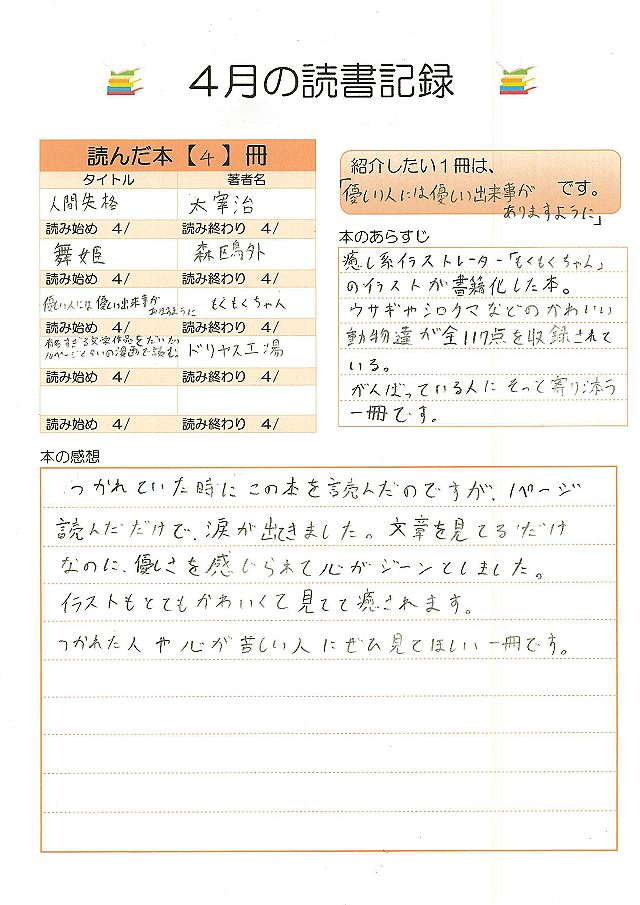 4月の読書記録
読んだ本【4】冊
タイトル 著者名
人間失格 太宰治
読み始め 4/ 読み終わり 4/
舞姫 森鴎外
読み始め 4/ 読み終わり 4/
優しい人には優しい出来事が
ありますように もくもくちゃん
読み始め 4/ 読み終わり 4/
有名すぎる文学作品をだいたい
10ページくらいの漫画で読む。 ドリヤス工場
読み始め 4/ 読み終わり 4/
読み始め 4/ 読み終わり 4/
紹介したい1冊は、
「優しい人には優しい出来事が
ありますように」 です。
本のあらすじ
癒し系イラストレーター「もくもくちゃん」
のイラストが書籍化した本。
ウサギやシロクマなどのかわいい
動物達が全117点を収録されて
いる。
がんばっている人にそっと寄り添う
一冊です。
本の感想
つかれていた時にこの本を読んだのですが、1ページ
読んだだけで、涙が出てきました。文章を見てるだけ
なのに、優しさを感じられて心がジーンとしました。
イラストもとてもかわいくて見てて癒されます。
つかれた人や心が苦しい人にぜひ見てほしい一冊です。